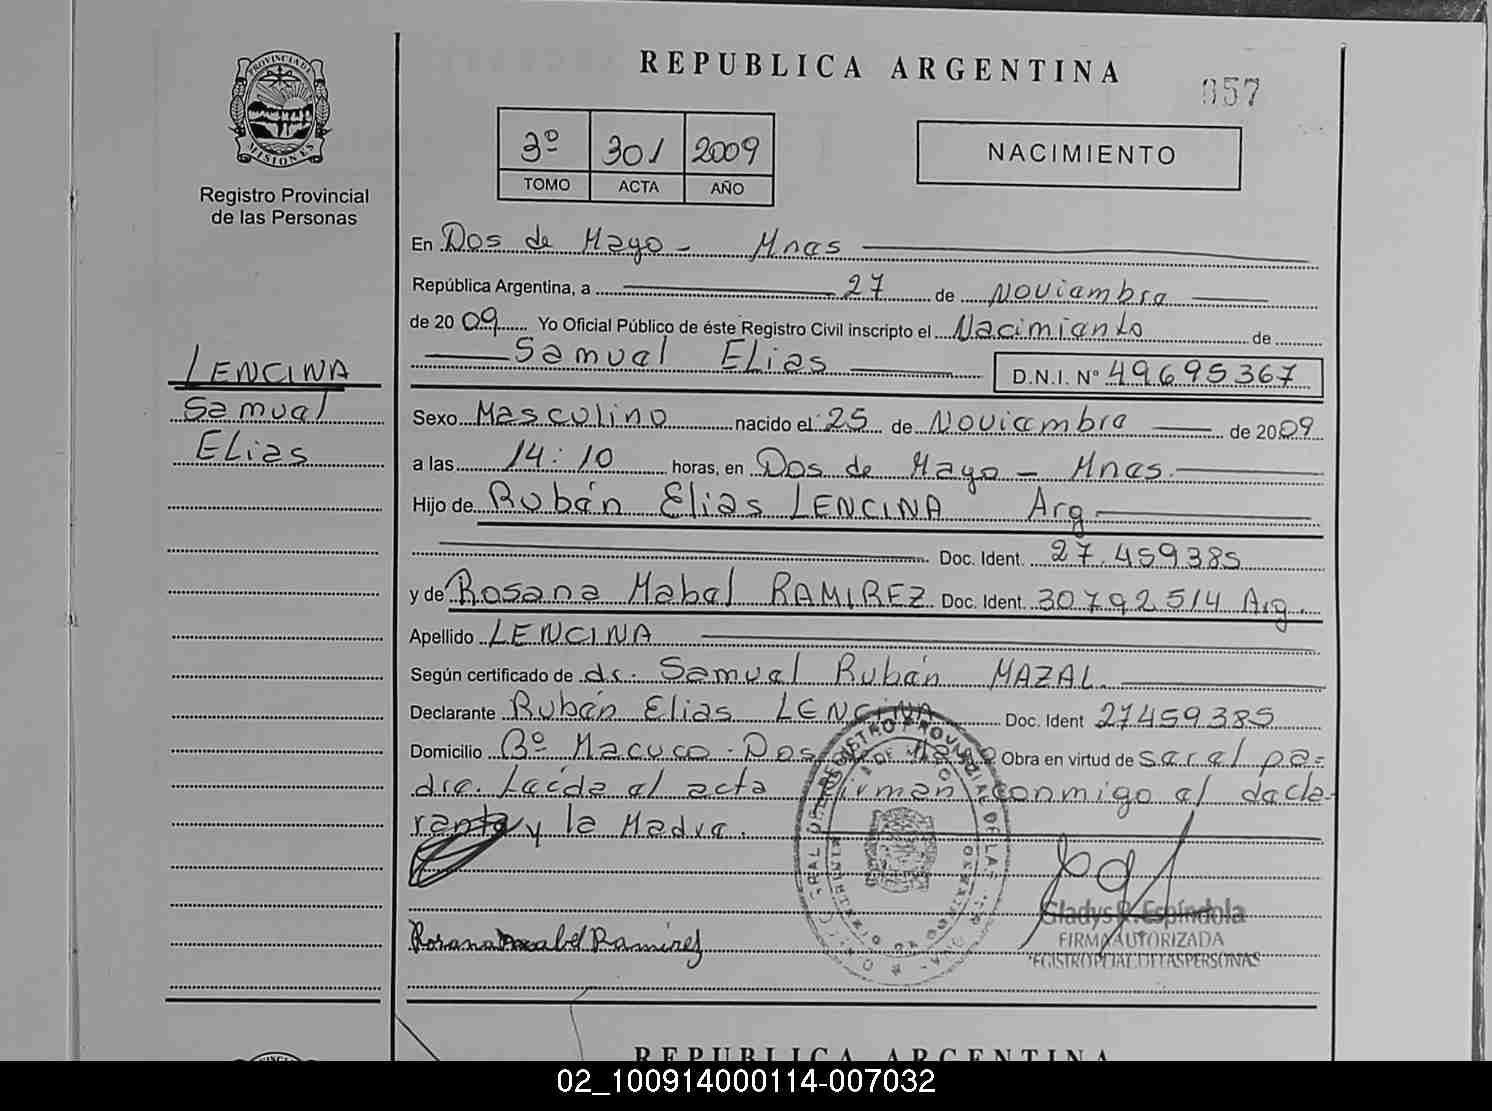 PROVINCIA DE
MISIONES
Registro Provincial
de las Personas
LENCINA
Samuel
Elias
REPUBLICA ARGENTINA
057
3º 301 2009
TOMO ACTA AÑO
NACIMIENTO
En Dos de Mayo - Mnes
República Argentina, a 27 de Noviembre
de 2009 Yo Oficial Público de éste Registro Civil inscripto el Nacimiento de
Samuel Elias D.N.I. Nº 49695367
Sexo Masculino nacido el 25 de Noviembre de 2009
a las 14:10 horas, en Dos de Mayo - Mnes.
Hijo de Rubén Elias LENCINA Arg
Doc. Ident. 27.459385
y de Rosana Mabel RAMIREZ Doc. Ident. 30792514 Arg.
Apellido LENCINA
Según certificado de dr. Samuel Rubén MAZAL.
Declarante Rubén Elias LENCINA Doc. Ident 27459385
Domicilio Bº Macuco - Dos de Mayo Obra en virtud de ser el pa=
dre. Leída el acta firman conmigo el decla-
rante y la Madre.
Rosana Mabel Ramirez
Gladys R. Espíndola
FIRMA AUTORIZADA
REGISTRO PCIAL. DE LAS PERSONAS
REPUBLICA ARGENTINA
02_100914000114-007032